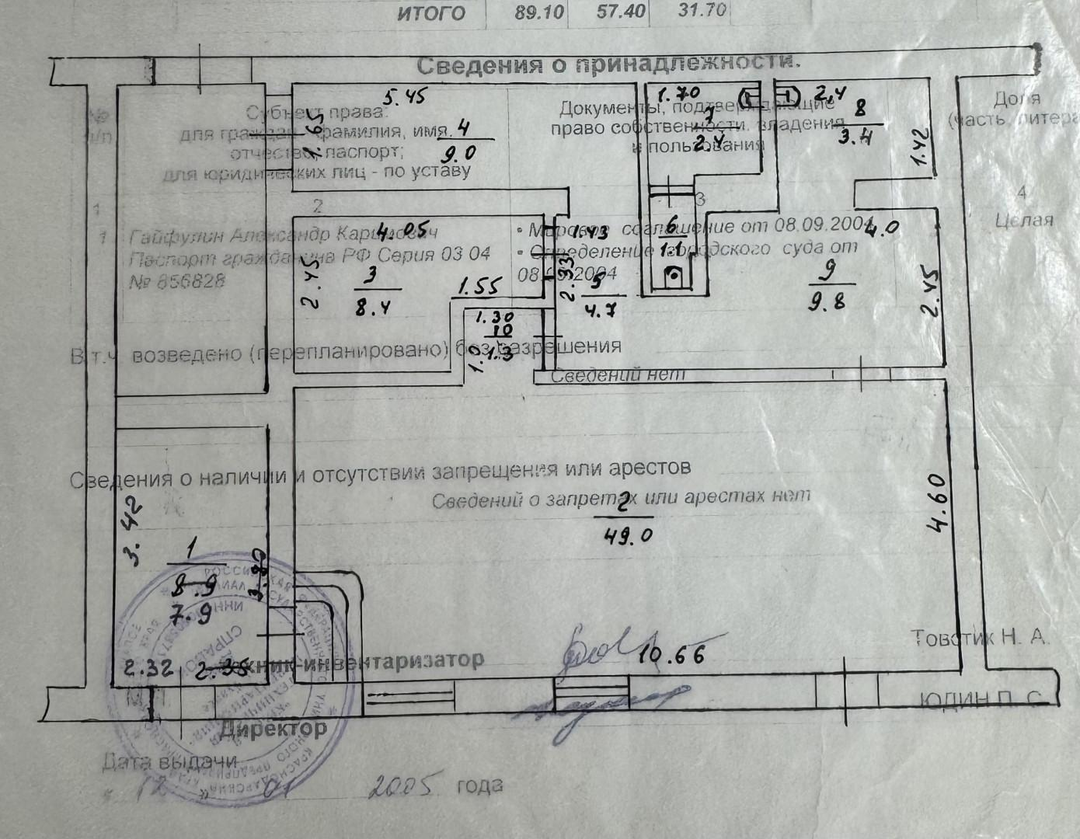 ИТОГО 89.10 57.40 31.70
Сведения о принадлежности.
№ п/п
Субъект права:
для граждан - фамилия, имя,
отчество, паспорт;
для юридических лиц - по уставу
Документы, подтверждающие
право собственности, владения
и пользования
Доля
(часть, литера
1 2 3 4
1. Гайфулин Александр Каримович
Паспорт гражданина РФ Серия 03 04
№ 856828
• Мировое соглашение от 08.09.2004
• Определение городского суда от
08.09.2004
Целая
В т.ч. возведено (перепланировано) без разрешения
Сведений нет
Сведения о наличии и отсутствии запрещения или арестов
Сведений о запретах или арестах нет
Техник-инвентаризатор
Товстик Н. А.
Директор
ЮДИН П. С.
Дата выдачи
2005 года
5.45
1.65
4
9.0
1.70
7
2.4
2,4
8
3.4
1.42
4.05
2.45
3
8.4
1.55
1.43
2.33
5
4.7
6
1.1
4.0
9
9.8
2.45
1.30
10
1.3
1.0
2
49.0
4.60
10.66
3.42
1
8.9
7.9
3.80
2.32
2.35